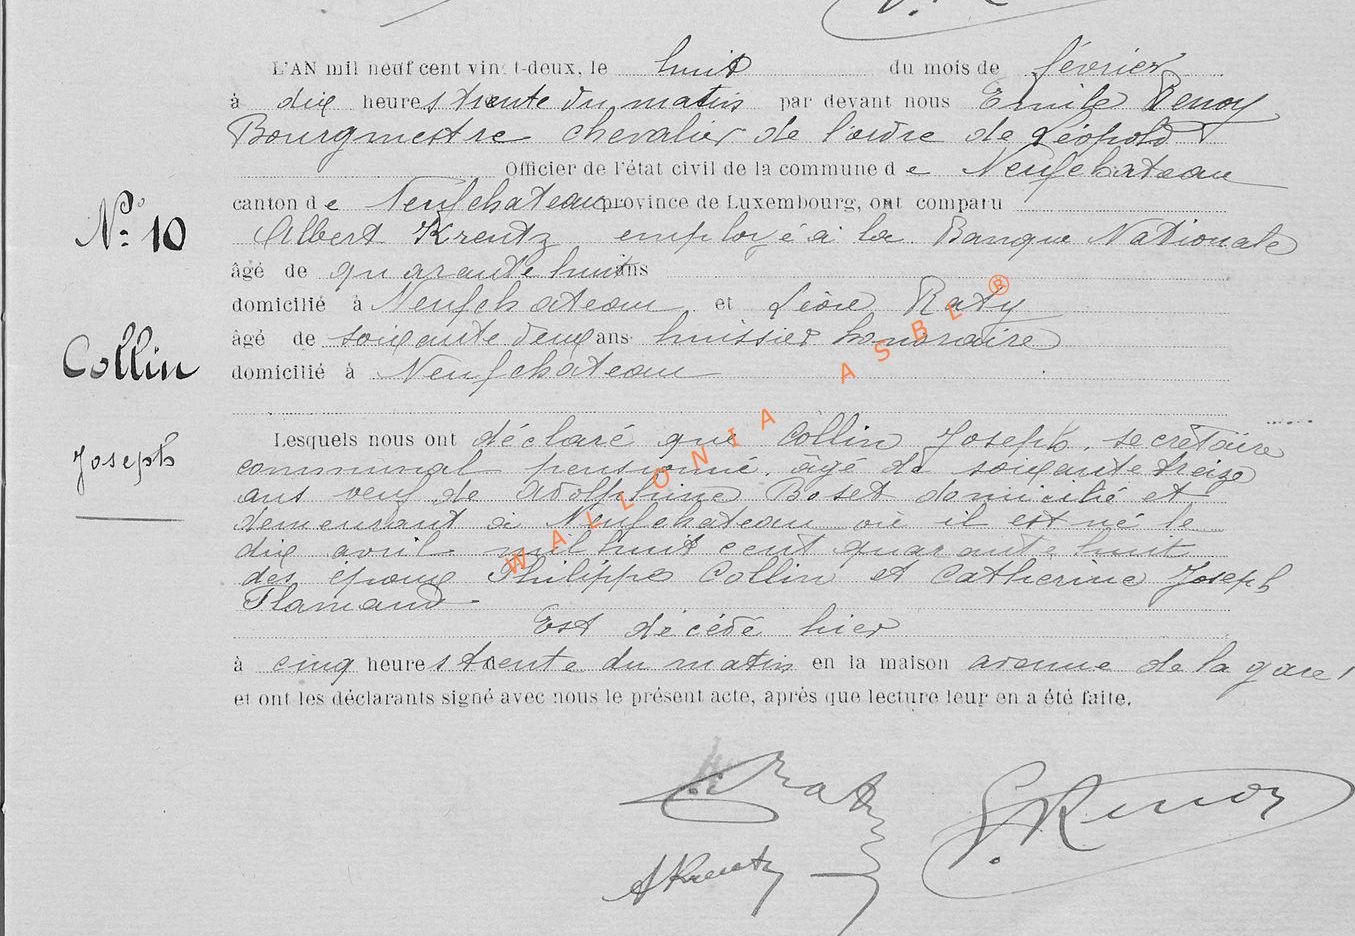 L'AN mil neuf cent vingt-deux, le huit du mois de février
à dix heures trente du matin par devant nous Emile Renoy
Bourgmestre chevalier de l'ordre de Léopold
Officier de l'état civil de la commune de Neufchateau
N° 10
canton de Neufchateau province de Luxembourg, ont comparu
Albert Kreutz employé à la Banque Nationale
âgé de quarante huit ans
domicilié à Neufchateau et Léon Raty
Collin
âgé de soixante deux ans huissier honoraire
domicilié à Neufchateau
Joseph
Lesquels nous ont déclaré que Collin Joseph, secrétaire
communal pensionné, âgé de soixante treize
ans veuf de Adolphine Boset domicilié et
demeurant à Neufchateau où il est né le
dix avril mil huit cent quarante huit
des époux Philippe Collin et Catherine Joseph
Flamand
Est décédé hier
à cinq heures trente du matin en la maison avenue de la gare
et ont les déclarants signé avec nous le présent acte, après que lecture leur en a été faite.
WALLONIA ASBL ®
L. Raty
E. Renoy
A Kreutz